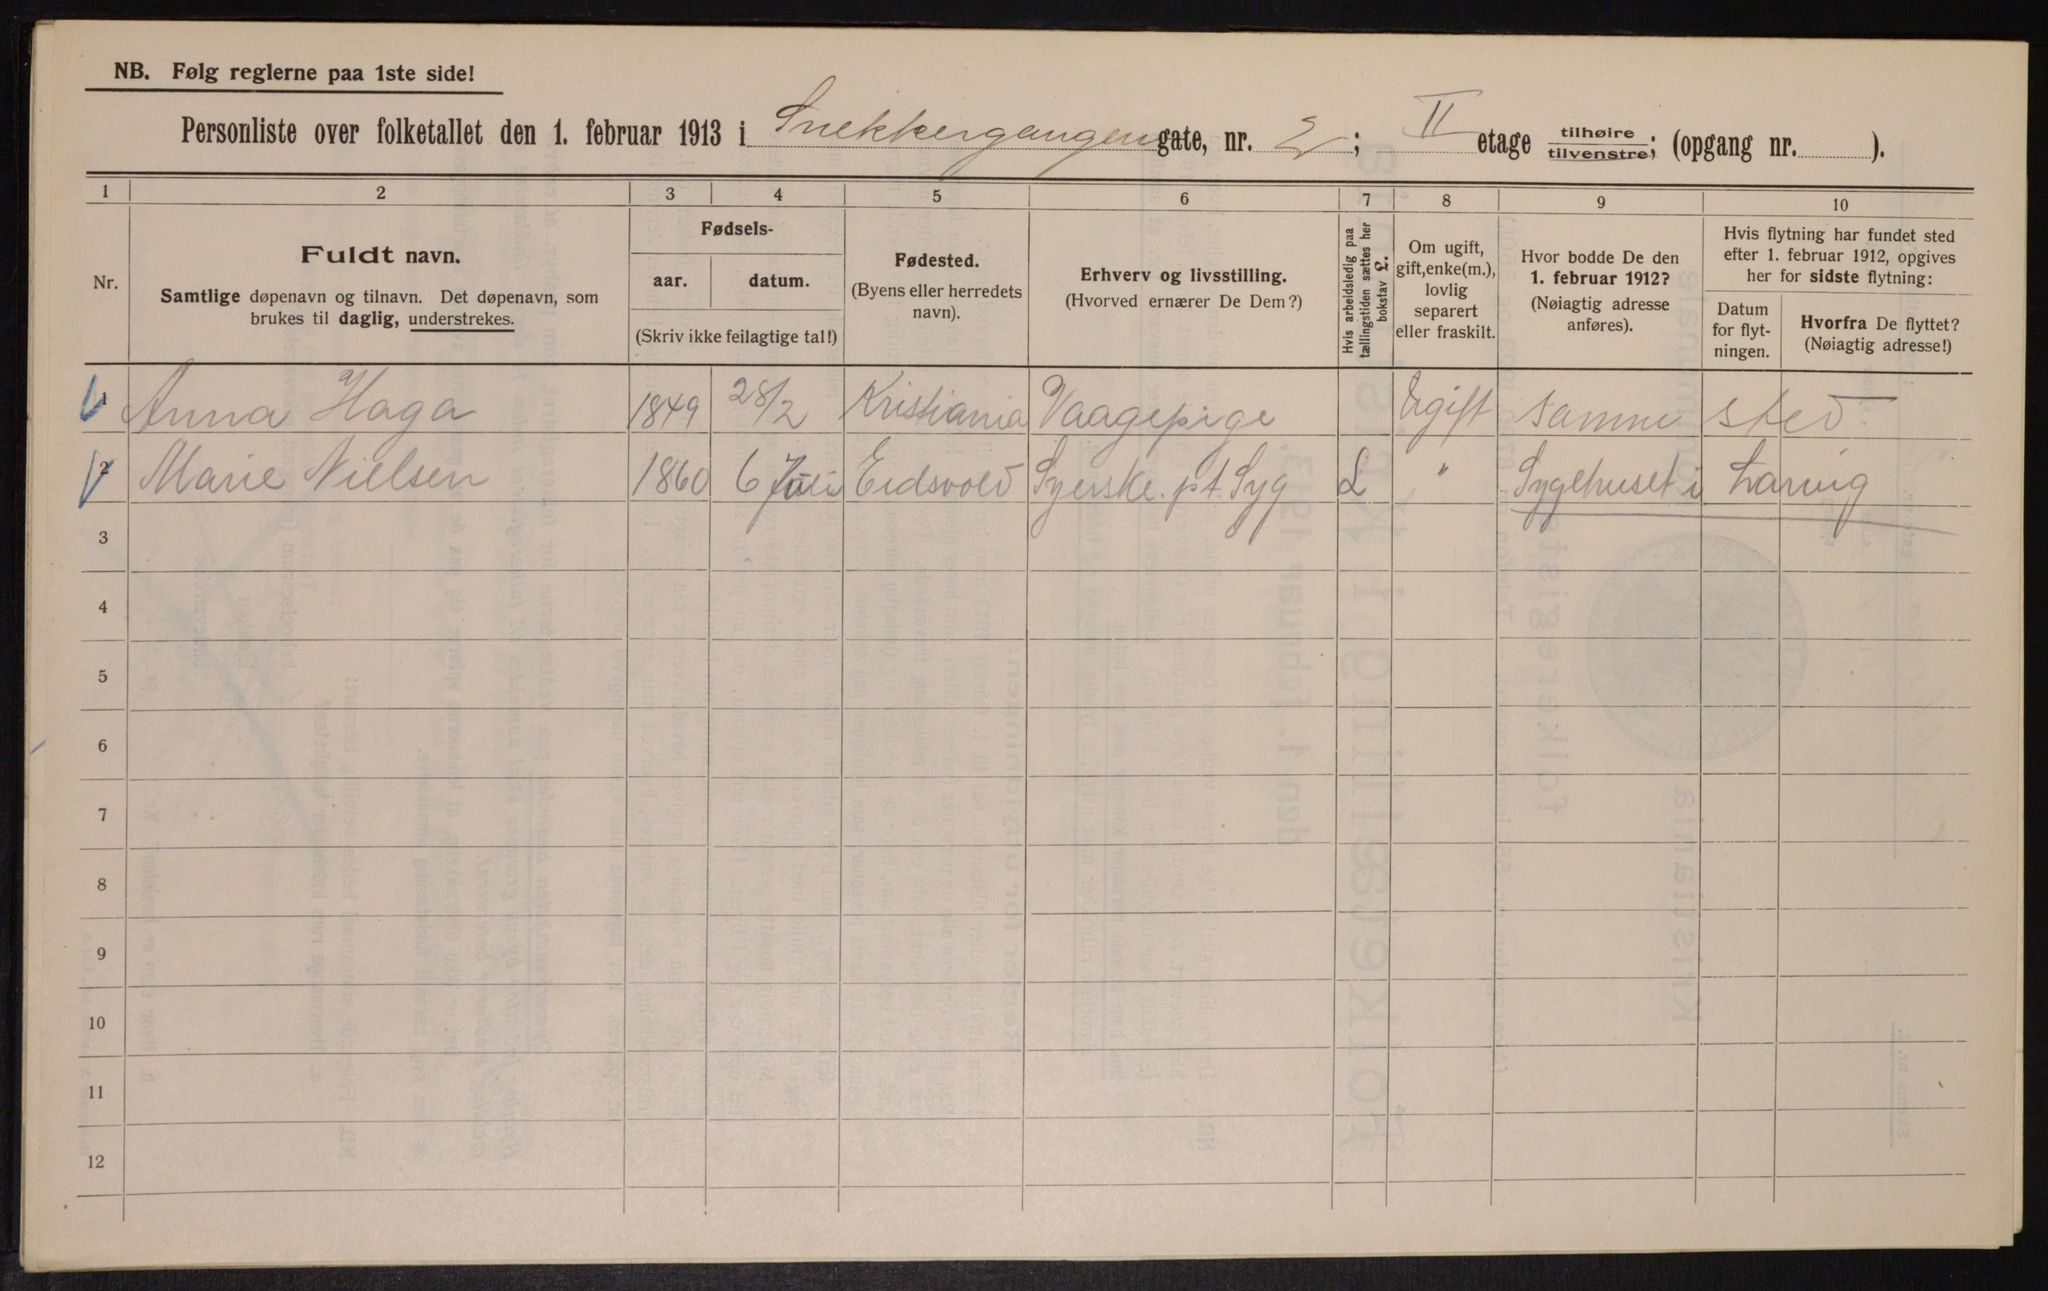 NB. Følg reglerne paa 1ste side!
Personliste over folketallet den 1. februar 1913 i Snekkergangen gate, nr. 2; II etage tilhøire tilvenstre; (opgang nr. ).
1 2 3 4 5 6 7 8 9 10
Nr.
Fuldt navn.
Samtlige døpenavn og tilnavn. Det døpenavn, som
brukes til daglig, understrekes.
Fødsels-
aar. datum.
(Skriv ikke feilagtige tal!)
Fødested.
(Byens eller herredets
navn).
Erhverv og livsstilling.
(Hvorved ernærer De Dem?)
Hvis arbeidsledig paa
tællingstiden sættes her
bokstav £.
Om ugift,
gift, enke(m.),
lovlig
separert
eller fraskilt.
Hvor bodde De den
1. februar 1912?
(Nøiagtig adresse
anføres).
Hvis flytning har fundet sted
efter 1. februar 1912, opgives
her for sidste flytning:
Datum
for flyt-
ningen.
Hvorfra De flyttet?
(Nøiagtig adresse!)
1 Anna Haga 1849 28/2 Kristiania Vaagepige Ugift samme sted
2 Marie Nielsen 1860 6 Juli Eidsvold Syerske pt. Syg £ " Sygehuset i Larvig
3
4
5
6
7
8
9
10
11
12